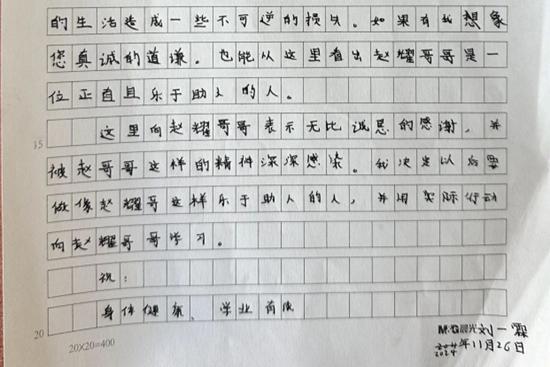 的生活造成一些不可逆的损失。如果有我想象
您真诚的道谦。也能从这里看出赵耀哥哥是一
位正直且乐于助人的人。
15 这里向赵耀哥哥表示无比诚恳的感谢，并
被赵哥哥这样的精神深深感染。我决定以后要
做像赵耀哥这样乐于助人的人，并用实际行动
向赵耀哥哥学习。
祝：
20 身体健康、学业有成
20X20=400
M&G晨光 刘一霖
2024年11月26日